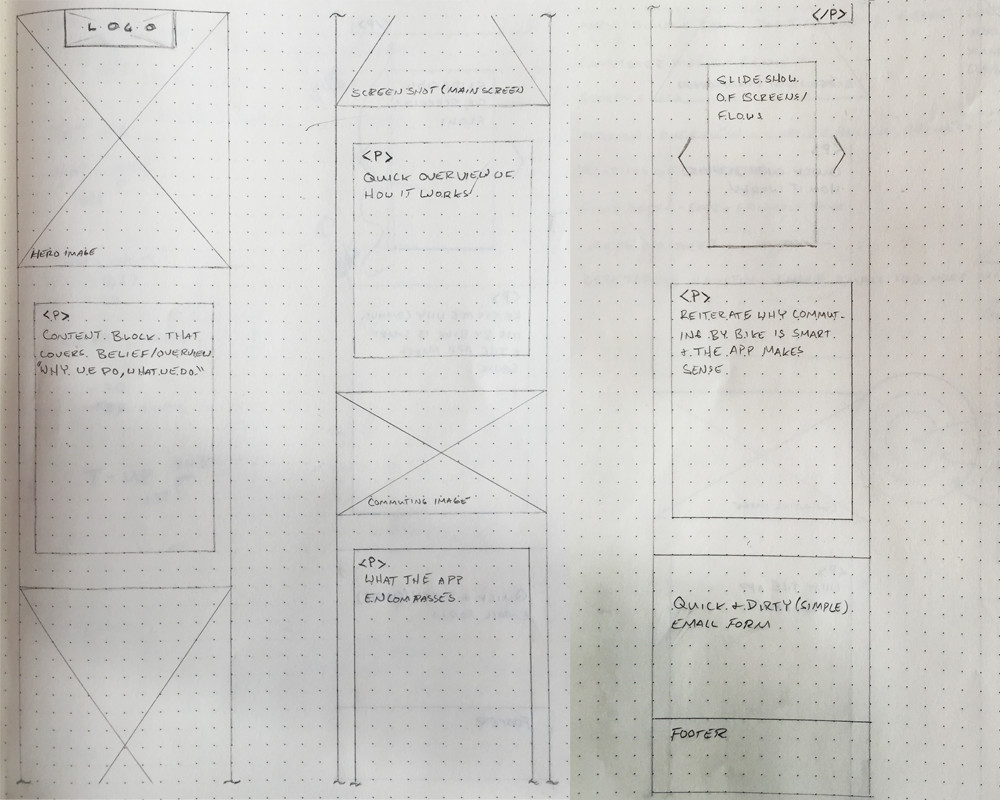 LOGO
HERO IMAGE
<P>
CONTENT BLOCK THAT
COVERS BELIEF/OVERVIEW
"WHY WE DO, WHAT WE DO"
SCREENSHOT (MAIN SCREEN
<P>
QUICK OVERVIEW OF
HOW IT WORKS
COMMUTING IMAGE
<P>
WHAT THE APP
ENCOMPASSES
</P>
SLIDESHOW
OF (SCREENS/
FLOWS
<P>
REITERATE WHY COMMUT-
ING BY BIKE IS SMART
+ THE APP MAKES
SENSE.
QUICK + DIRTY (SIMPLE)
EMAIL FORM
FOOTER